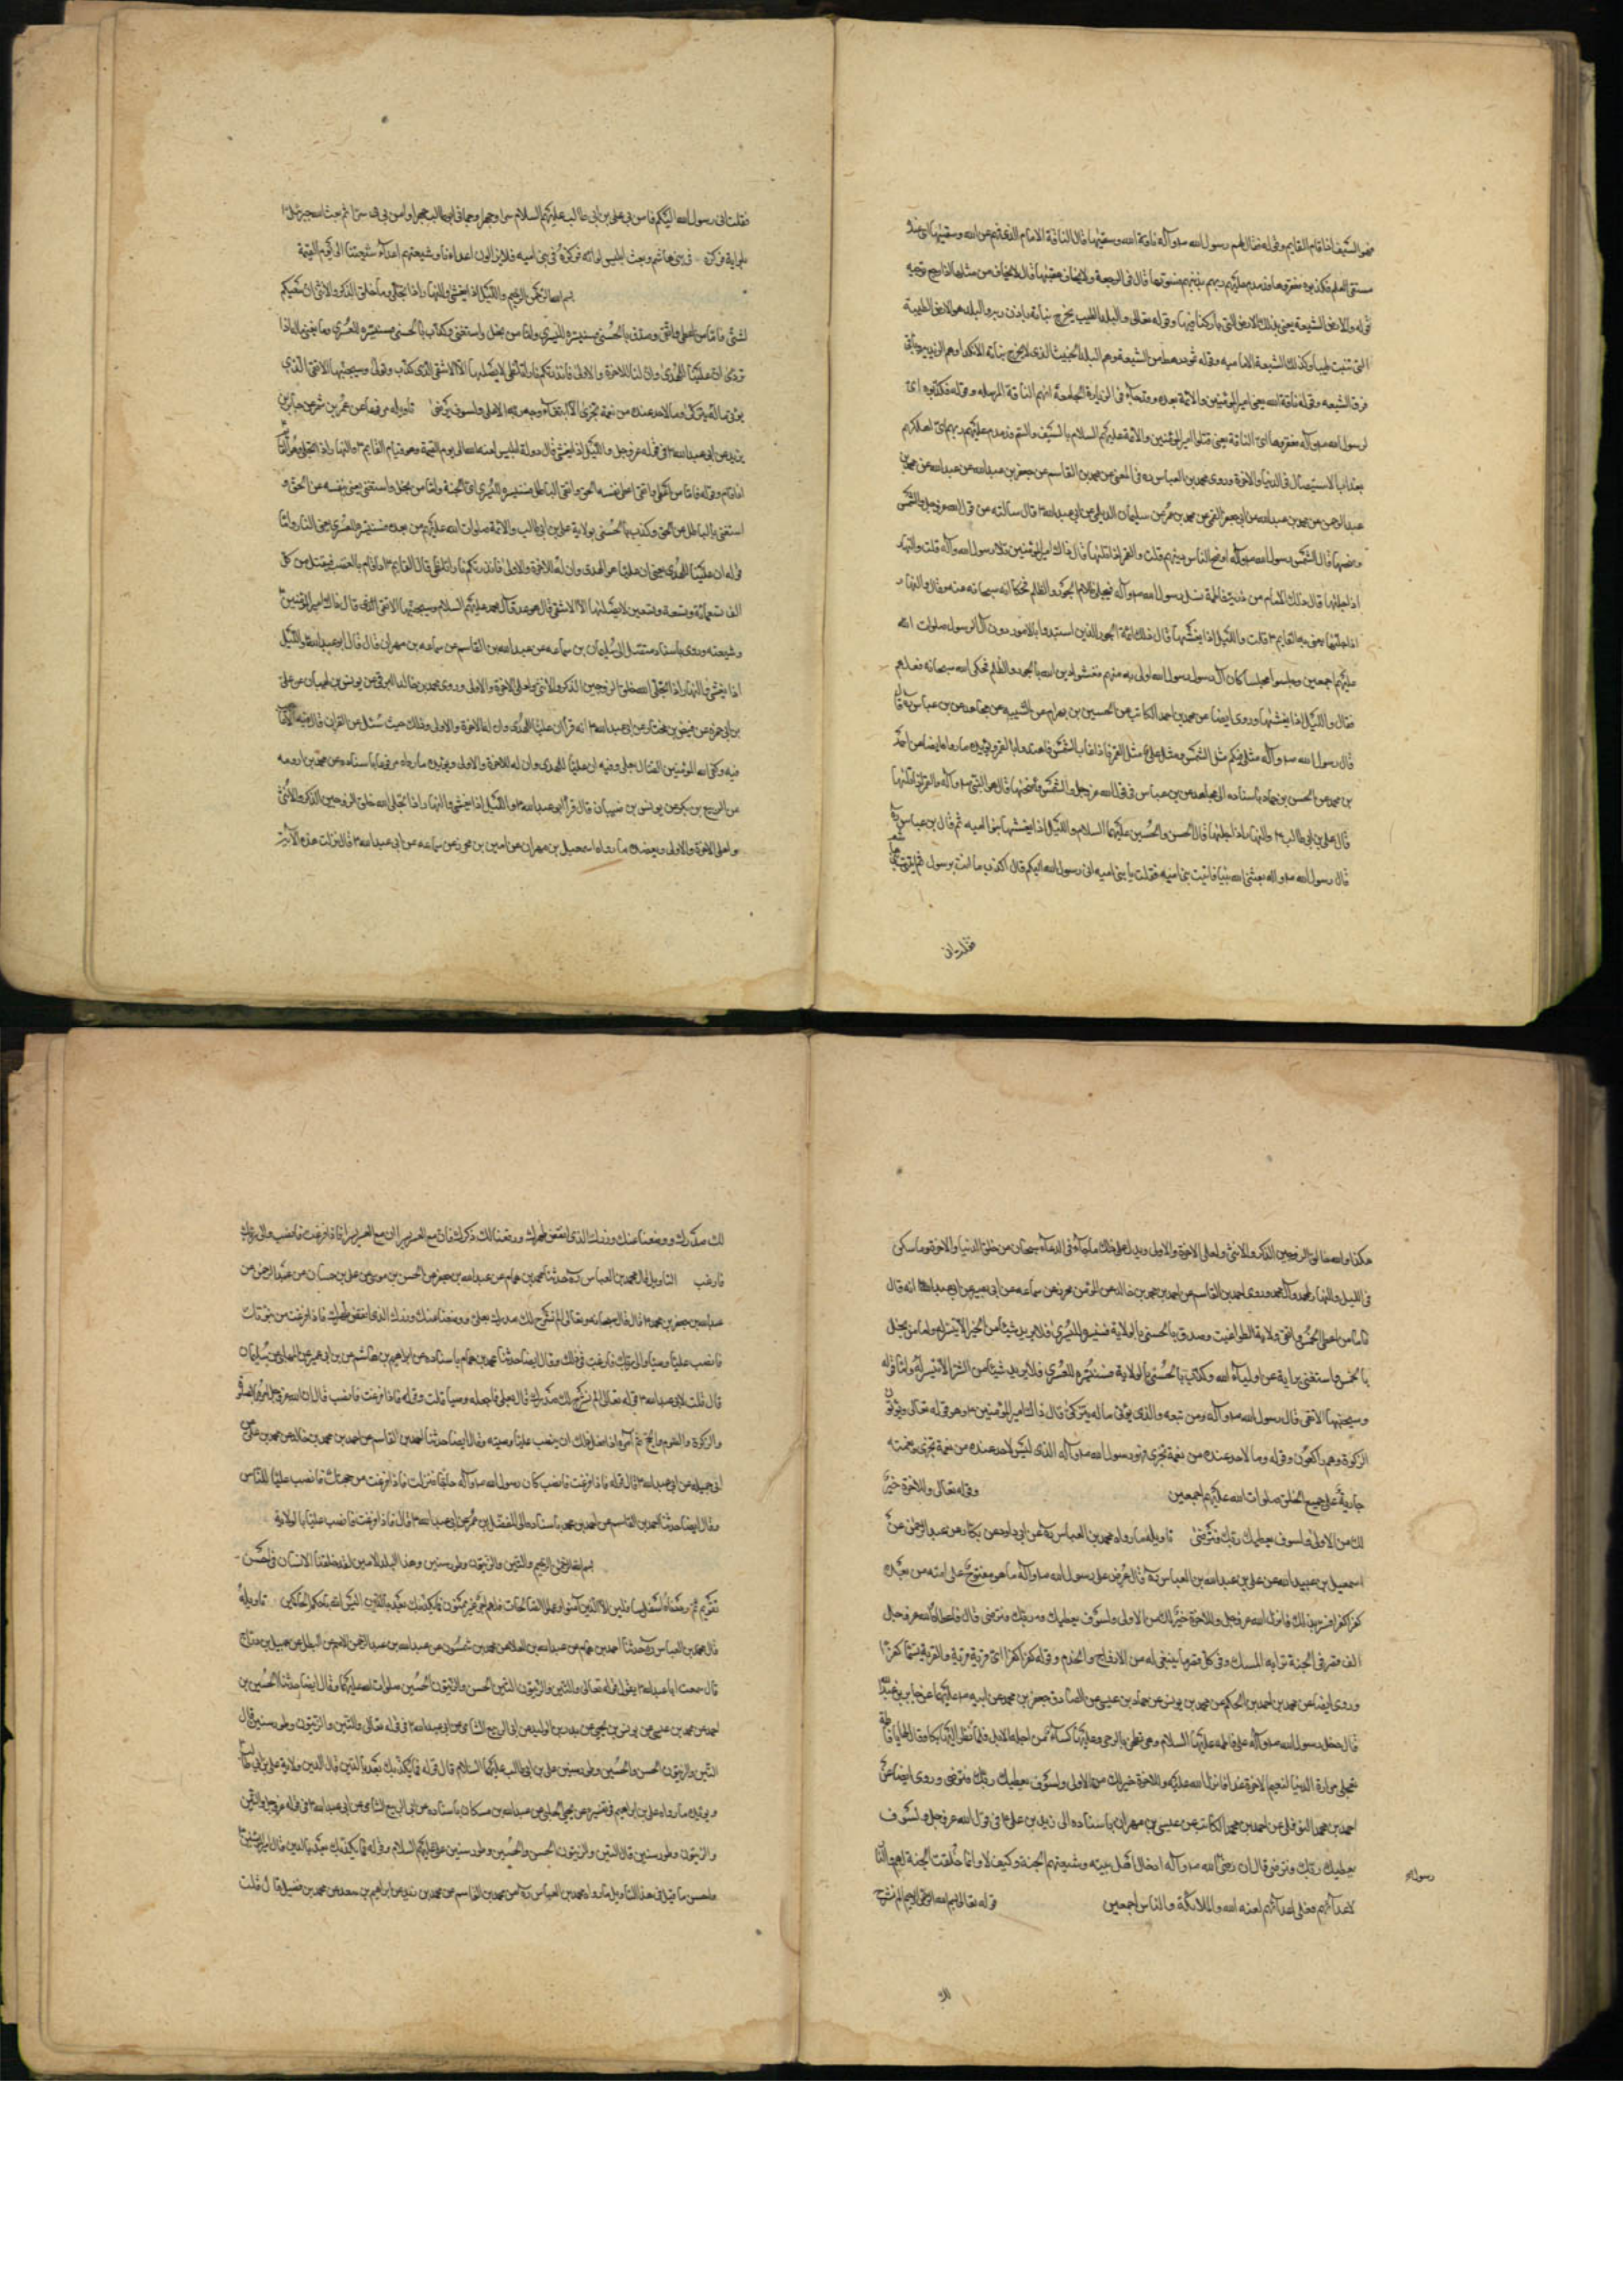 هو السيف اذا قام القايم وقوله فقال لهم رسول الله صلى وآله ناقة الله وسقيها قال الناقة الامام الذى فهم عن الله وسقيها اى عنده
مستقى العلم فكذبوه فعقروها فدمدم عليهم ربهم بذنبهم فسويها قال فى الرجعة ولا يخاف عقبها قال لا يخاف من مثلها اذا رجع
قوله والارض الشيعة يعنى بذلك الارض التى باركنا فيها وقوله تعالى والبلد الطيب يخرج نباته باذن ربه والبلد هو الارض الطيبة
التى تنبت طيبا وكذلك الشيعة الاماميه وقوله ثمود رهط من الشيعة وهم البلد الخبيث الذى لا يخرج نباته الا نكدا وهم الزيديه وباقى
فرق الشيعه وقوله ناقة الله يعنى امير المؤمنين والائمة بعده وقد جاء فى الزيارة الجامعة انهم الناقة المرسله وقوله فكذبوه اى
لرسول الله صلى وآله فعقروها اى الناقة يعنى قتلوا امير المؤمنين والائمة عليهم السلام بالسيف والسم فدمدم عليهم ربهم اى اهلكهم
بعذاب الاستيصال فى الدنيا والاخرة وروى محمد بن العباس ره فى المعنى عن محمد بن القاسم عن جعفر بن عبدالله عن عبدالله عن محمد بن
عبد الرحمن عن محمد بن عبدالله عن ابى جعفر القمى عن محمد بن عمر عن سليمان الديلمى عن ابى عبدالله ع قال سألته عن قول الله عز وجل والشمس
وضحيها قال الشمس رسول الله صلى وآله اوضح للناس دينهم قلت والقمر اذا تليها قال ذاك امير المؤمنين تلا رسول الله وآله قلت والنهار
اذا جليها قال ذلك الامام من ذرية فاطمة نسل رسول الله صلى وآله فيجلى ظلام الجور والظلم فحكى الله سبحانه عنه فقال والنهار
اذا جليها يعنى به القايم ع قلت والليل اذا يغشيها قال ذلك ائمة الجور الذين استبدوا بالامور دون آل الرسول صلوات الله
عليهم اجمعين وجلسوا مجلسا كان آل رسول رسول الله اولى به منهم فغشوا دين الله بالجور والظلم فحكى الله سبحانه فعلهم
فقال والليل اذا يغشيها وروى ايضا عن محمد بن احمد الكاتب عن الحسين بن بهرام عن الليث عن مجاهد عن بن عباس ره قال
قال رسول الله صلى وآله مثلى فيكم مثل الشمس ومثل على مثل القمر فاذا غاب الشمس فاهتدوا بالقمر ويؤيده ما رواه ايضا عن احمد
بن محمد عن الحسن بن حماد باسناده الى مجاهد عن بن عباس فى قول الله عز وجل والشمس وضحيها قال هو النبى صلى وآله والقمر اذا تليها
قال على بن ابى طالب ع والنهار اذا جليها قال الحسن والحسين عليهما السلام والليل اذا يغشيها بنو اميه ثم قال بن عباس ره
قال رسول الله صلى وآله بعثنى الله نبيا فاتيت بنى اميه فقلت يا بنى اميه انى رسول الله اليكم قال كذبت ما انت برسول ثم اتيت بنى هاشم
فقلت انى
فقلت انى رسول الله اليكم فامن بى على بن ابى طالب عليهم السلام سرا وجهرا وحمانى ابو طالب جهرا وامن بى سرا ثم بعث الله جبرئيل ع
بلوايه فركزه فى بنى هاشم وبعث ابليس لوائه فركزه فى بنى اميه فلا يزالون اعداءنا وشيعتهم اعداء شيعتنا الى يوم القيمة
بسم الله الرحمن الرحيم والليل اذا يغشى والنهار اذا تجلى وما خلق الذكر والانثى ان سعيكم
لشتى فاما من اعطى واتقى وصدق بالحسنى فسنيسره لليسرى واما من بخل واستغنى وكذب بالحسنى فسنيسره للعسرى وما يغنى ماله اذا
تردى ان علينا للهدى وان لنا للاخرة والاولى فانذرتكم نارا تلظى لا يصليها الا الاشقى الذى كذب وتولى وسيجنبها الاتقى الذى
يؤتى ماله يتزكى وما لاحد عنده من نعمة تجزى الا ابتغاء وجه ربه الاعلى ولسوف يرضى تاويله مرفوعا عن عمر بن شمر عن جابر بن
يزيد عن ابى عبدالله ع فى قوله عز وجل والليل اذا يغشى قال دولة ابليس لعنه الله الى يوم القيمة وهو قيام القايم ع والنهار اذا تجلى هو القايم
اذا قام وقوله فاما من اعطى واتقى اعطى نفسه الحق واتقى الباطل فسنيسره لليسرى اى الجنة واما من بخل واستغنى يعنى بنفسه عن الحق و
استغنى بالباطل عن الحق وكذب بالحسنى بولاية على بن ابى طالب والائمة صلوات الله عليهم من بعده فسنيسره للعسرى يعنى النار واما
قوله ان علينا للهدى يعنى ان عليا هو الهدى وان له للاخرة والاولى فانذرتكم نارا تلظى قال القايم ع اذا قام بالغضب فيقتل من كل
الف تسعمائة وتسعة وتسعين لا يصليها الا الاشقى قال هو عدو آل محمد عليهم السلام وسيجنبها الاتقى الذى قال ذاك امير المؤمنين
وشيعته وروى باسناد متصل الى سليمان بن سماعه عن عبدالله بن القاسم عن سماعه بن مهران قال قال ابو عبدالله ع والليل
اذا يغشى والنهار اذا تجلى الله خلق الزوجين الذكر والانثى وله الاخرة والاولى وروى محمد بن خالد البرقى عن يونس بن ظبيان عن على
بن ابى حمزه عن فيض بن مختار عن ابى عبدالله ع انه قرأ ان عليا للهدى وان له الاخرة والاولى وذلك حيث سئل عن القران قال فيه الاعاجيب
فيه وكفى الله المؤمنين القتال بعلى وفيه ان عليا للهدى وان له للاخرة والاولى ويؤيده ما رواه مرفوعا باسناده عن محمد بن اورمه
عن الربيع بن بكر عن يونس بن ظبيان قال قرأ ابو عبدالله ع والليل اذا يغشى والنهار اذا تجلى الله خلق الزوجين الذكر والانثى
ولعلى الاخرة والاولى ويعضده ما رواه اسمعيل بن مهران عن ايمن بن محرز عن سماعه عن ابى عبدالله ع قال نزلت هذه الآية
هكذا والله خالق الزوجين الذكر والانثى ولعلى الاخرة والاولى ويدل على ذلك ما جاء فى الدعاء سبحان من خلق الدنيا والاخرة وما سكن
فى الليل والنهار لمحمد وآل محمد وروى احمد بن القاسم عن احمد بن محمد بن خالد عن ايمن بن محرز عن سماعه عن ابى بصير عن ابى عبدالله ع انه قال
فاما من اعطى الخمس واتقى ولاية الطواغيت وصدق بالحسنى بالولاية فسنيسره لليسرى فلا يريد شيئا من الخير الا تيسر له واما من بخل
بالخمس واستغنى برايه عن اولياء الله وكذب بالحسنى بالولاية فسنيسره للعسرى فلا يريد شيئا من الشر الا تيسر له واما قوله
وسيجنبها الاتقى قال رسول الله صلى وآله ومن تبعه والذى يؤتى ماله يتزكى قال ذاك امير المؤمنين ع وهو قوله تعالى ويؤتون
الزكوة وهم راكعون وقوله وما لاحد عنده من نعمة تجزى فهو رسول الله صلى وآله الذى ليس لاحد عنده من نعمة تجزى ونعمته
جارية على جميع الخلق صلوات الله عليهم اجمعين وقوله تعالى وللاخرة خير
لك من الاولى ولسوف يعطيك ربك فترضى تاويله ما رواه محمد بن العباس ره عن ابى داود عن بكار عن عبد الرحمن عن
اسمعيل بن عبيد الله عن على بن عبدالله بن العباس ره قال عرض على رسول الله صلى وآله ما هو مفتوح على امته من بعده
كفرا كفرا فسر بذلك فانزل الله عز وجل وللاخرة خير لك من الاولى ولسوف يعطيك ربك فترضى قال فاعطاه الله عز وجل
الف قصر فى الجنة ترابه المسك وفى كل قصر ما ينبغى له من الازواج والخدم وقوله كفرا كفرا اى قرية قرية والقرية تسمى كفرا
وروى ايضا عن محمد بن احمد بن الحكم عن محمد بن يونس عن حماد بن عيسى عن الصادق جعفر بن محمد عن ابيه عليهما عن جابر بن عبدالله
قال دخل رسول الله صلى وآله على فاطمه عليها السلام وهى تطحن بالرحى وعليها كساء من اجله الابل فلما نظر اليها بكا وقال لها يا فاطمة
تعجلى مرارة الدنيا لنعيم الاخرة غدا فانزل الله عليه وللاخرة خير لك من الاولى ولسوف يعطيك ربك فترضى وروى ايضا عن
احمد بن محمد النوفلى عن احمد بن محمد الكاتب عن عيسى بن مهران باسناده الى زيد بن على ع فى قول الله عز وجل ولسوف
يعطيك ربك فترضى قال ان رضى رسول الله صلى وآله ادخال اهل بيته وشيعتهم الجنة وكيف لا وانما خلقت الجنة لهم والنار
لاعدآئهم فعلى اعدآئهم لعنه الله والملائكة والناس اجمعين قوله تعالى بسم الله الرحمن الرحيم الم نشرح
لك
لك صدرك ووضعنا عنك وزرك الذى انقض ظهرك ورفعنا لك ذكرك فان مع العسر يسرا ان مع العسر يسرا فاذا فرغت فانصب والى ربك
فارغب التاويل قال محمد بن العباس ره حدثنا محمد بن همام عن عبدالله بن جعفر عن الحسن بن موسى عن على بن حسان عن عبد الرحمن عن
عبدالله بن جعفر بن محمد ع قال قال سبحانه وتعالى الم نشرح لك صدرك بعلى ووضعنا عنك وزرك الذى انقض ظهرك فاذا فرغت من نبوتك
فانصب عليا وصيا والى ربك فارغب فى ذلك وقال ايضا حدثنا محمد بن همام باسناده عن ابراهيم بن هاشم عن بن ابى عمير عن المهلبى عن سليمان
قال قلت لابى عبدالله ع قوله تعالى الم نشرح لك صدرك قال بعلى فاجعله وصيا قلت وقوله فاذا فرغت فانصب قال ان الله عز وجل امره بالصلوة
والزكوة والصوم والحج ثم امره اذا فعل ذلك ان ينصب عليا وصيه وقال ايضا حدثنا احمد بن القاسم عن احمد بن محمد بن خالد عن محمد بن على عن
ابى جميله عن ابى عبدالله ع قال قوله فاذا فرغت فانصب كان رسول الله صلى وآله حاجا فنزلت فاذا فرغت من حجتك فانصب عليا للناس
وقال ايضا حدثنا احمد بن القاسم عن احمد بن محمد باسناده الى المفضل بن عمر عن ابى عبدالله ع قال فاذا فرغت فانصب عليا بالولاية
بسم الله الرحمن الرحيم والتين والزيتون وطور سينين وهذا البلد الامين لقد خلقنا الانسان فى احسن
تقويم ثم رددناه اسفل سافلين الا الذين آمنوا وعملوا الصالحات فلهم اجر غير ممنون فما يكذبك بعد بالدين اليس الله باحكم الحاكمين تاويله
قال محمد بن العباس ره حدثنا احمد بن همام عن عبدالله بن العلا عن محمد بن شمون عن عبدالله بن عبد الرحمن الاصم عن البطل عن جميل بن دراج
قال سمعت ابا عبدالله ع يقول قوله تعالى والتين والزيتون التين الحسن والزيتون الحسين صلوات الله عليهما وقال ايضا حدثنا الحسين بن
احمد عن محمد بن عيسى عن يونس بن يحيى عن بدر بن الوليد عن ابى الربيع الشامى عن ابى عبدالله ع فى قوله تعالى والتين والزيتون وطور سينين قال
التين والزيتون الحسن والحسين وطور سينين على بن ابى طالب عليهم السلام قال قوله فما يكذبك بعد بالدين قال الدين ولاية على بن ابى طالب
ويؤيده ما رواه على بن ابراهيم فى تفسيره عن يحيى الحلبى عن عبدالله بن مسكان باسناده عن ابى الربيع الشامى عن ابى عبدالله ع فى قوله عز وجل والتين
والزيتون وطور سينين قال التين والزيتون الحسن والحسين وطور سينين على عليهم السلام وقوله فما يكذبك بعد بالدين قال امير المؤمنين ع
واحسن ما قيل فى هذا التاويل ما رواه محمد بن العباس ره عن محمد بن القاسم عن محمد بن زيد عن ابراهيم بن سعد عن محمد بن فضيل قال قلت